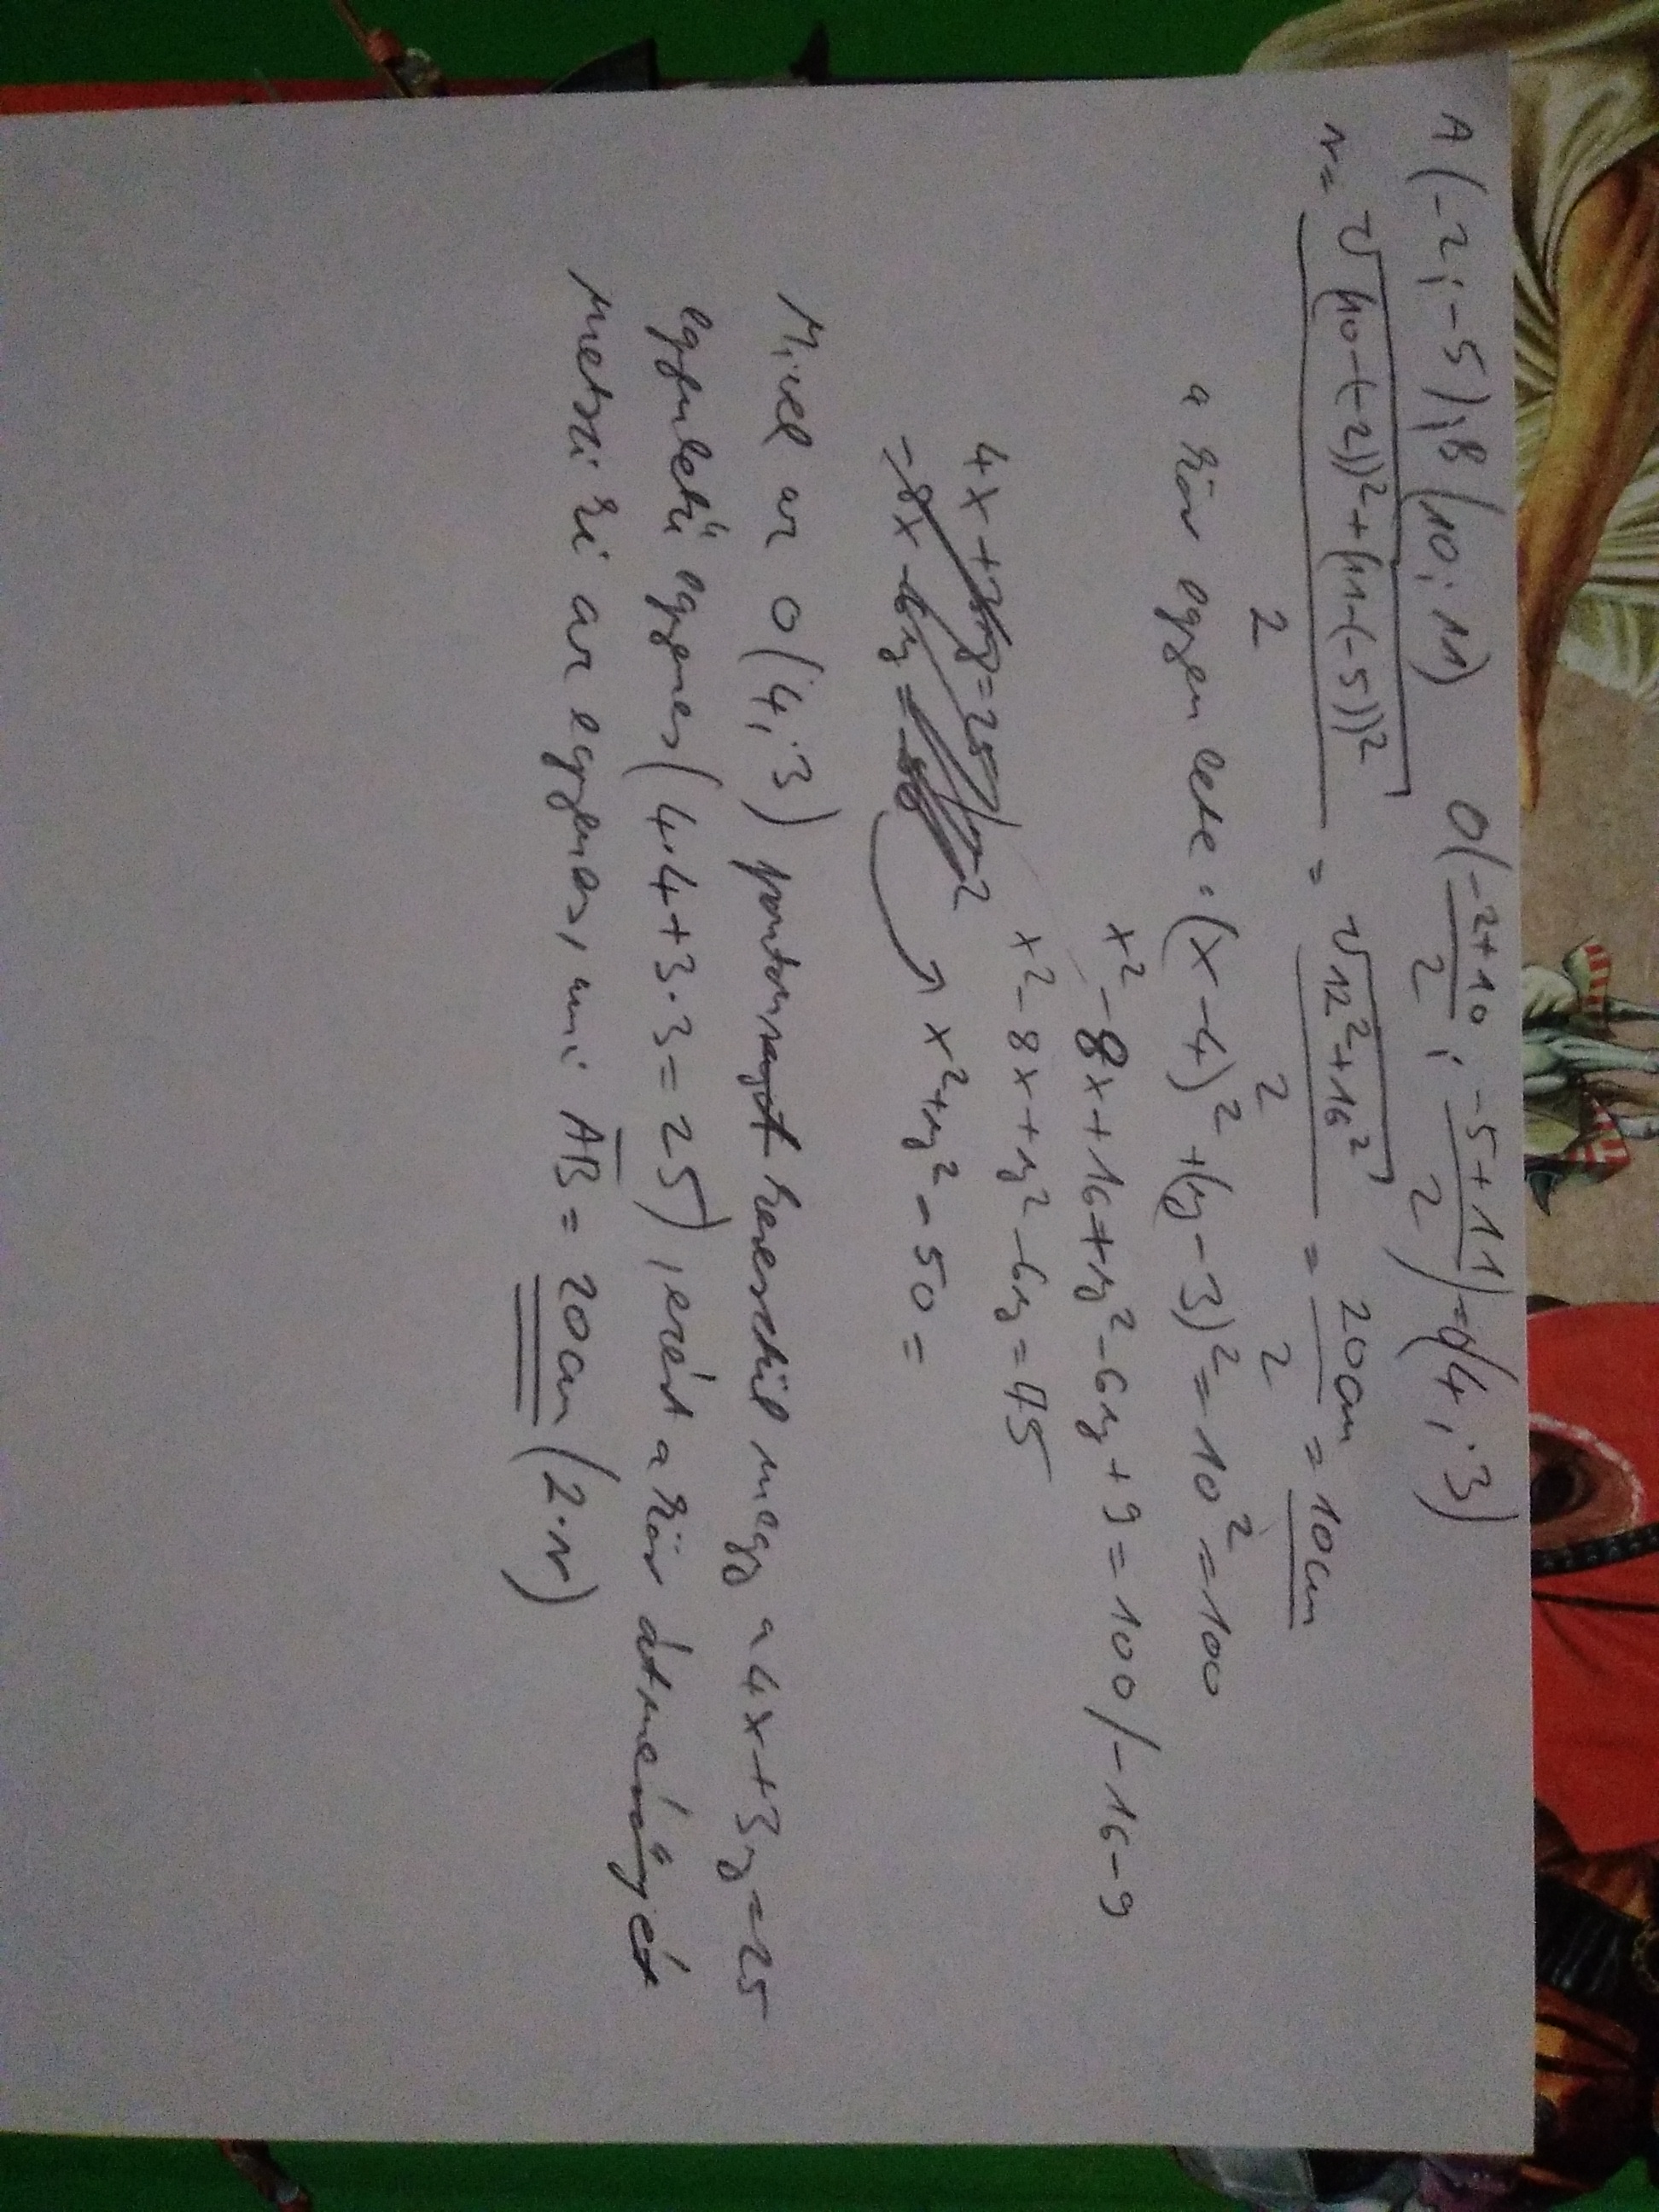 A(-2;-5);B(10;11) O(\frac{-2+10}{2};\frac{-5+11}{2})=O(4;3)
r=\frac{\sqrt{(10-(-2))^2+(11-(-5))^2}}{2}=\frac{\sqrt{12^2+16^2}}{2}=\frac{20cm}{2}=10cm
a kör egyenlete:(x-4)^2+(y-3)^2=10^2=100
x^2-8x+16+y^2-6y+9=100/-16-9
x^2-8x+y^2-6y=75
4x+3y=25/·-2
-8x-6y=-50
x^2+y^2-50=
Mivel az O(4;3) ponton keresztül megy a 4x+3y=25
egyenletű egyenes(4·4+3·3=25), ezért a kör átmérőjét
metszi ki az egyenes, ami AB=20cm(2·r)